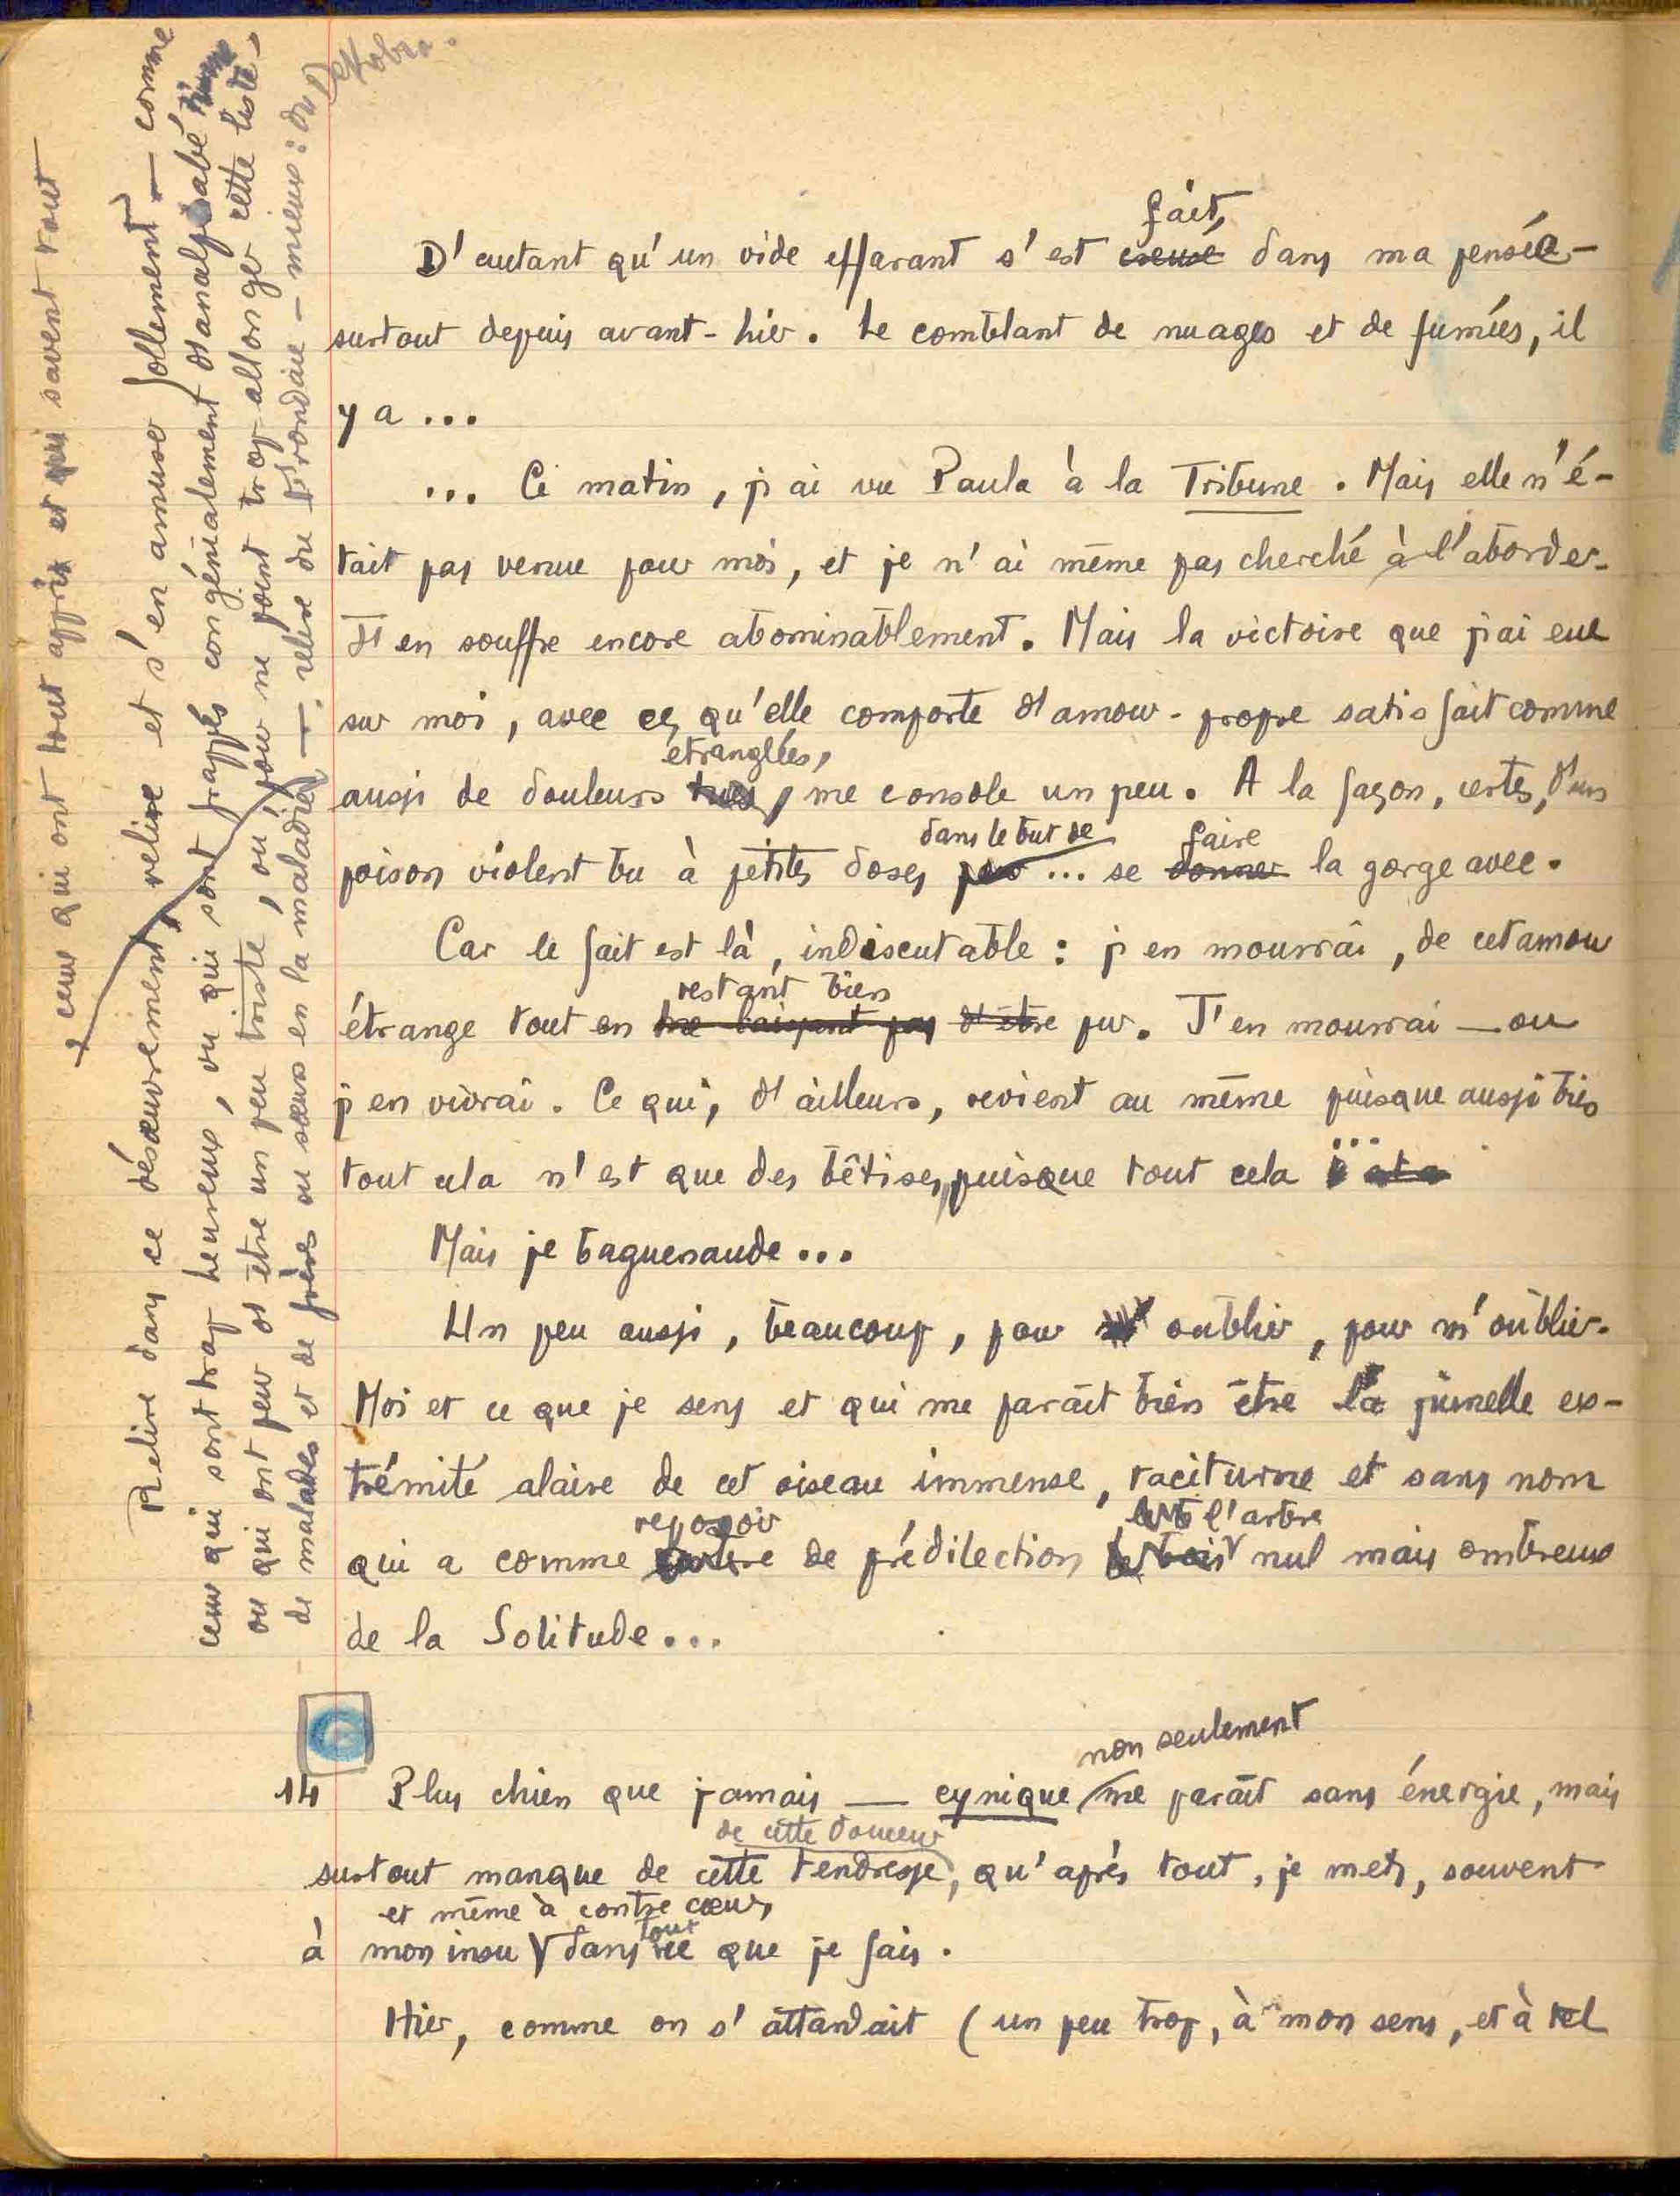 D'autant qu'un vide effarant s'est creusé fait, dans ma pensée -
surtout depuis avant-hier. Le comblant de nuages et de fumées, il
y a ...
... Ce matin, j'ai vu Paula à la Tribune. Mais elle n'é-
tait pas venue pour moi, et je n'ai même pas cherché à l'aborder.
J'en souffre encore abominablement. Mais la victoire que j'ai eue
sur moi, avec ce qu'elle comporte d'amour-propre satisfait comme
étranglées,
aussi de douleurs tues, me console un peu. A la façon, certes, d'un
dans le but de faire
poison violent bu à petites doses pour ... se donner la gorge avec.
Car le fait est là, indiscutable : j'en mourrai, de cet amour
restant bien
étrange tout en ne laissant pas d'être pur. J'en mourrai — ou
j'en vivrai. Ce qui, d'ailleurs, revient au même puisque aussi bien
tout cela n'est que des bêtises, puisque tout cela ...
Mais je baguenaude ...
Un peu aussi, beaucoup, pour oublier, pour m'oublier.
Moi et ce que je sens et qui me paraît bien être la jumelle ex-
trémité alaire de cet oiseau immense, taciturne et sans nom
reposoir l'arbre
qui a comme de prédilection le bois nul mais ombreux
de la Solitude ...
non seulement
14 Plus chien que jamais — cynique me paraît sans énergie, mais
de cette douceur
surtout manque de cette tendresse, qu'après tout, je mets, souvent
et même à contre cœur,
à mon insu dans tout ce que je fais.
Hier, comme on s'attardait (un peu trop, à mon sens, et à tel
Relire dans ce désœuvrement, relire et s'en amuser follement — comme
ceux qui sont trop heureux, vu qui sont frappés congénialement d'analphabé
ou qui ont peur d'être un peu triste, ou, pour ne point trop allonger cette liste -
de malades et de frères ou sœurs en la maladie — : relire du - mieux : du Destobre.
ceux qui ont tout appris et qui savent tout